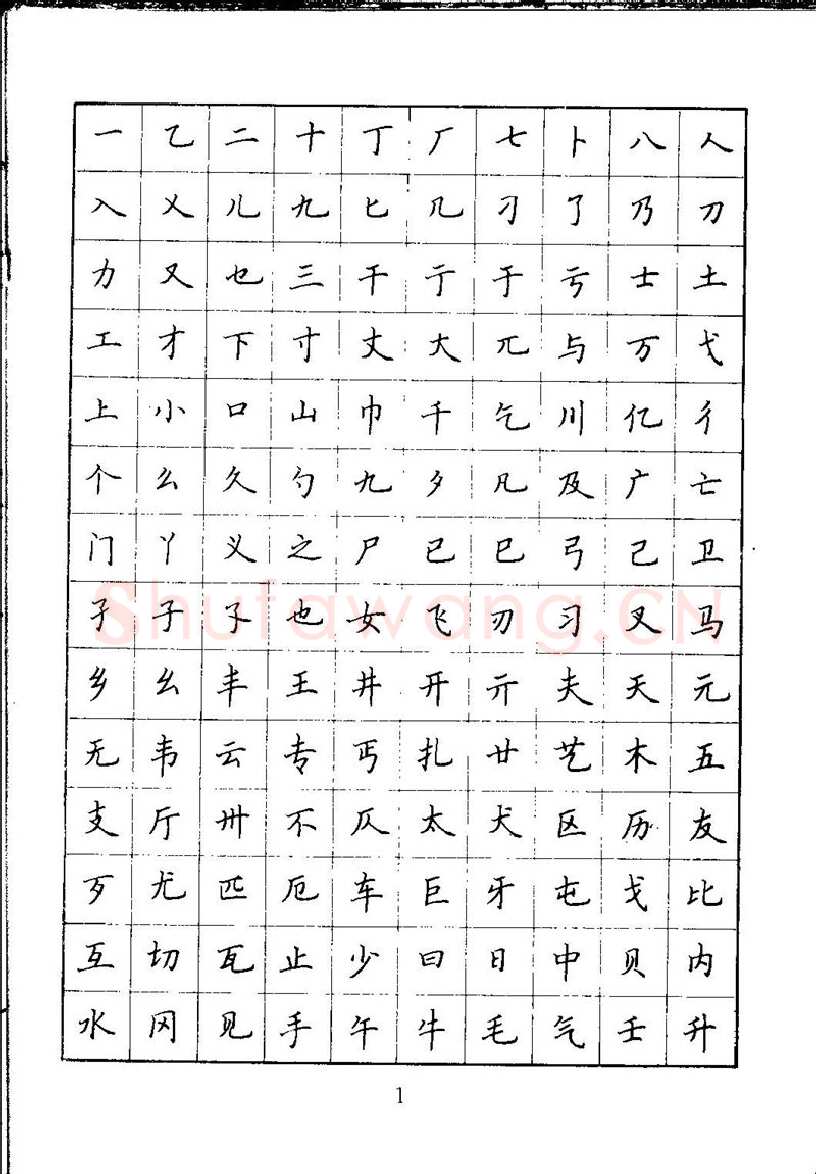 一 乙 二 十 丁 厂 七 卜 八 人
入 乂 儿 九 匕 几 刁 了 乃 刀
力 又 乜 三 干 亍 于 亏 士 土
工 才 下 寸 丈 大 兀 与 万 弋
上 小 口 山 巾 千 乞 川 亿 彳
个 么 久 勺 丸 夕 凡 及 广 亡
门 丫 义 之 尸 已 巳 弓 己 卫
孑 子 孓 也 女 飞 刃 习 叉 马
乡 幺 丰 王 井 开 亓 夫 天 元
无 韦 云 专 丐 扎 廿 艺 木 五
支 厅 卅 不 仄 太 犬 区 历 友
歹 尤 匹 厄 车 巨 牙 屯 戈 比
互 切 瓦 止 少 曰 日 中 贝 内
水 冈 见 手 午 牛 毛 气 壬 升
Shufawang.CN
1